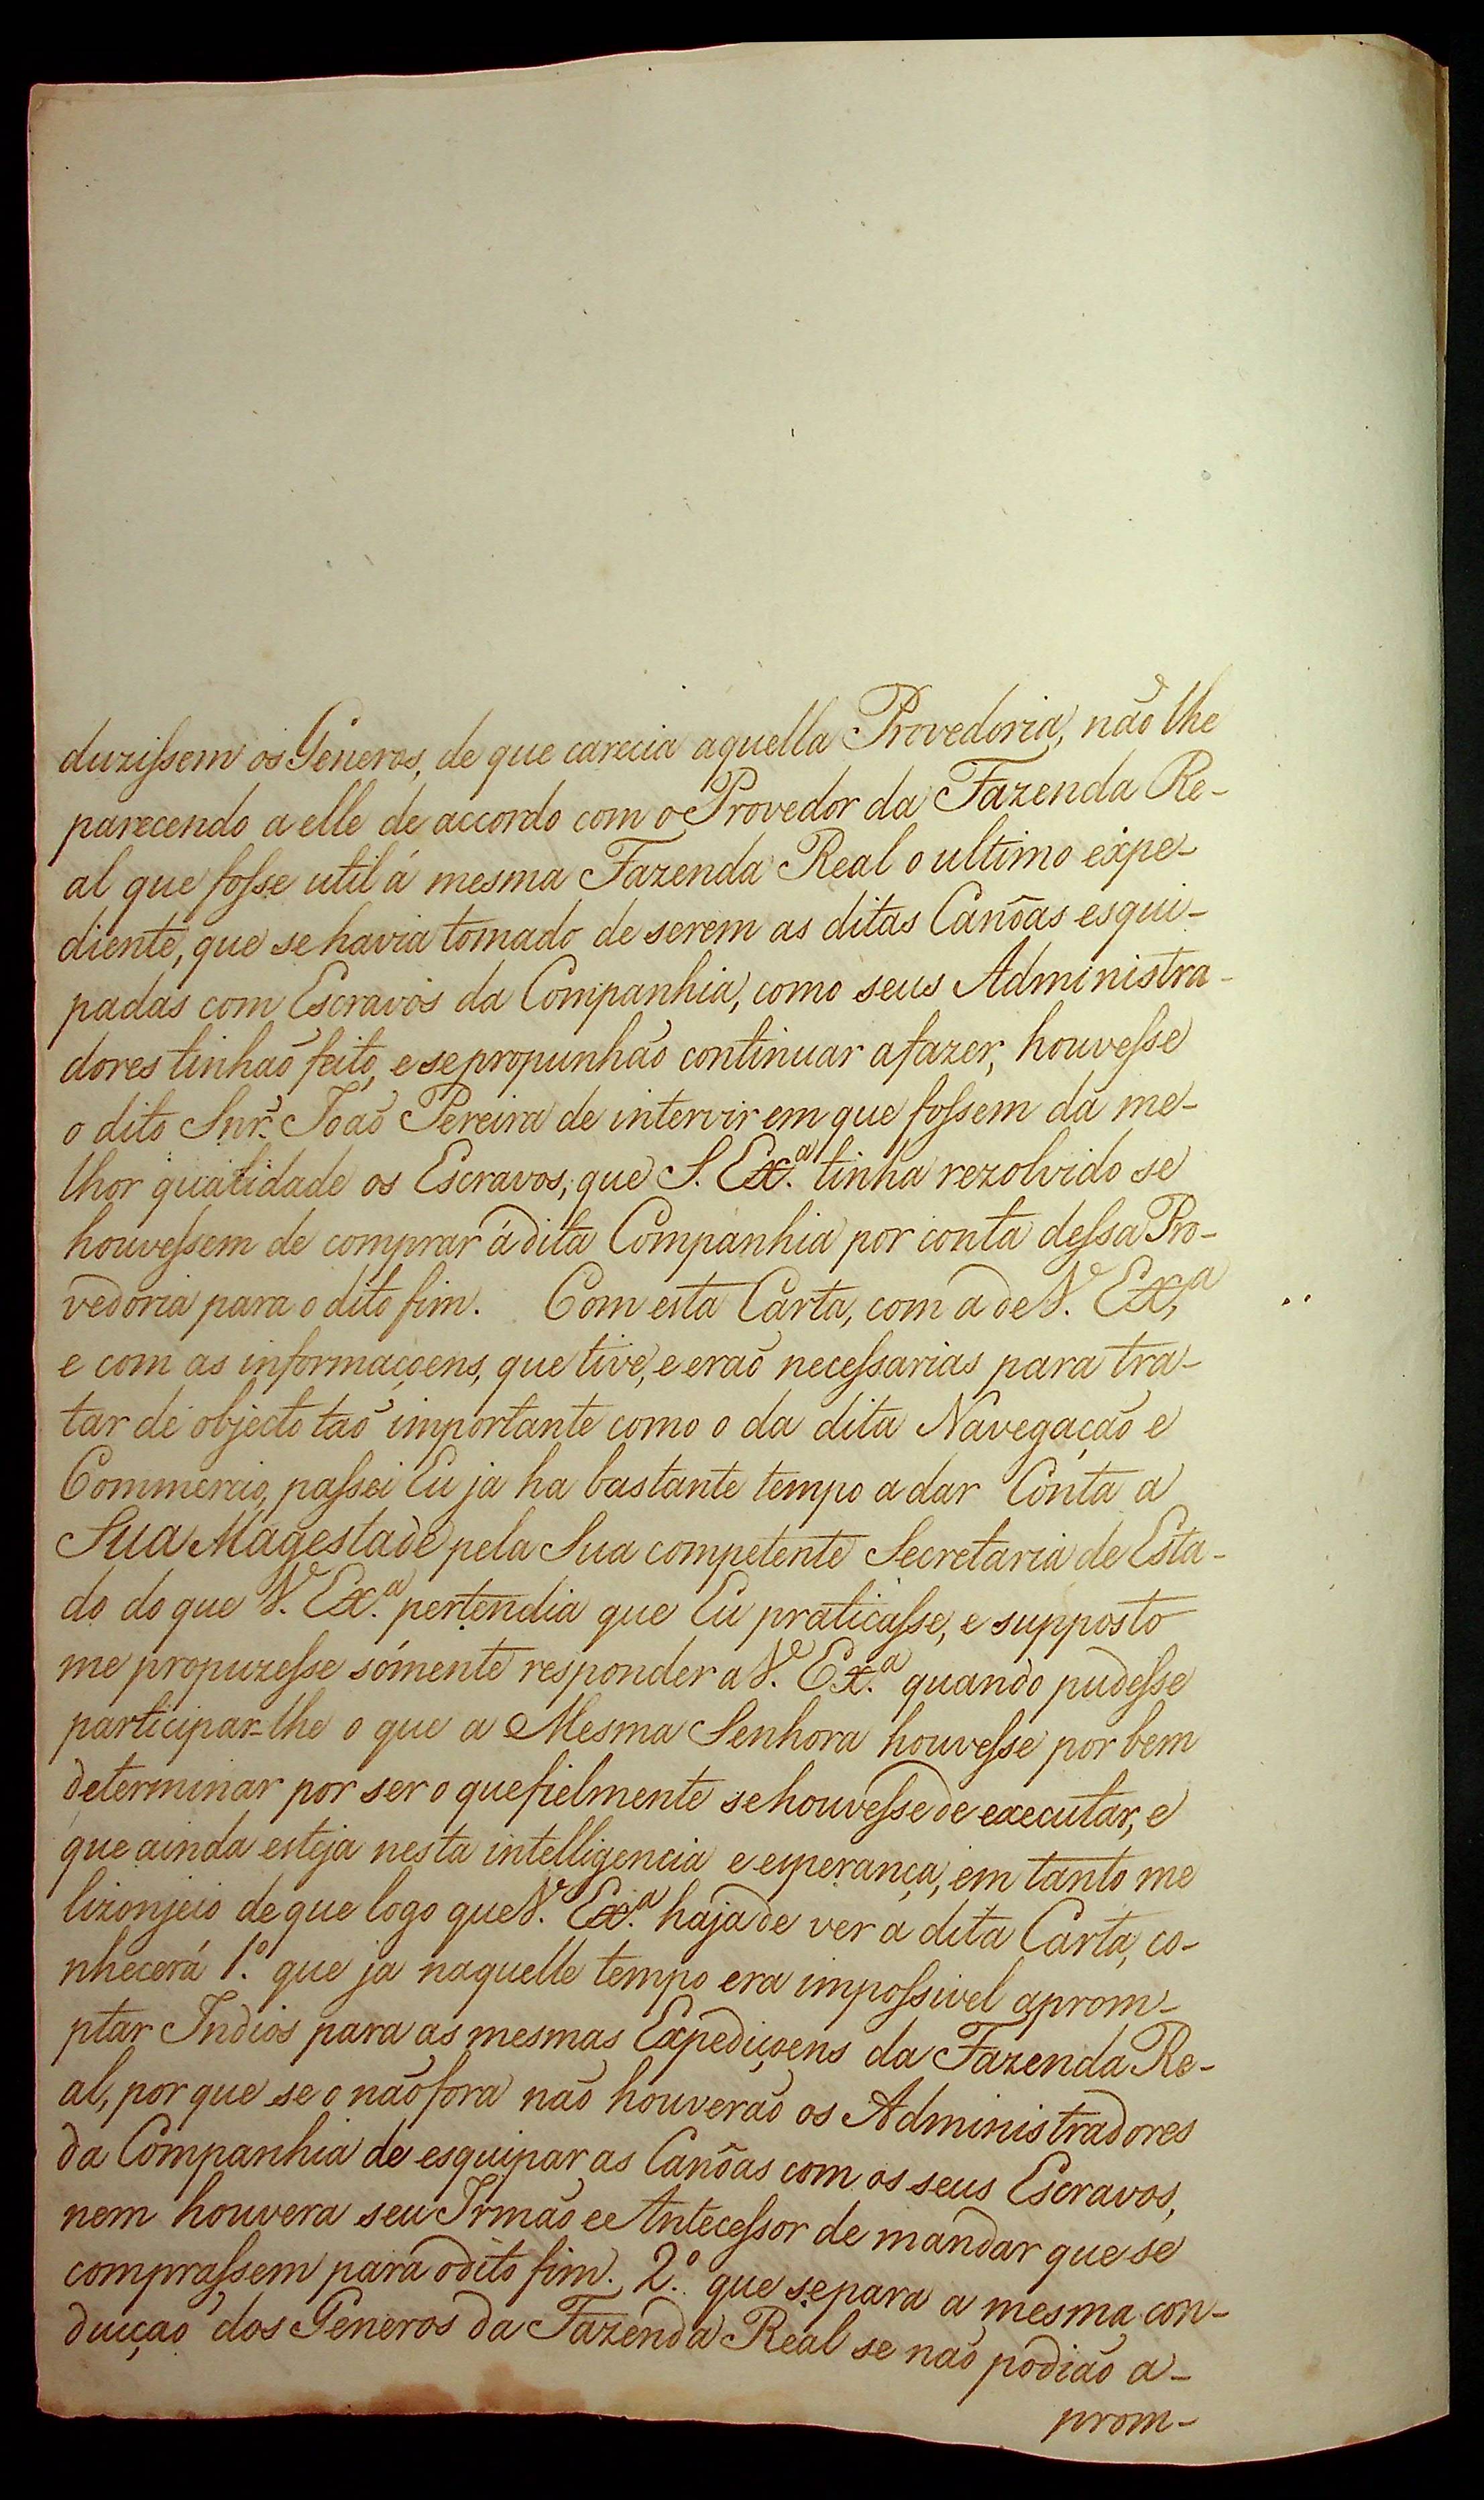 duzissem os Generos, de que carecia aquella Provedoria, não lhe
parecendo a elle de accordo com o Provedor da Fazenda Re-
al que fosse util á mesma Fazenda Real o ultimo expe-
diente, que se havia tomado de serem as ditas Canôas esqui-
padas com Escravos da Companhia, como seus Administra-
dores tinhaõ feito, e se propunhaõ continuar a fazer, houvesse
o dito Snr. Joaõ Pereira de intervir em que fossem da me-
lhor qualidade os Escravos, que S. Ex.ª tinha rezolvido se
houvessem de comprar á dita Companhia por conta dessa Pro-
vedoria para o dito fim. Com esta Carta, com a de V. Ex.ª
e com as informaçoens, que tive, e eraõ necessarias para tra-
tar de objecto taõ importante como o da dita Navegação e
Commercio, passei Eu ja ha bastante tempo a dar Conta a
Sua Magestade pela Sua competente Secretaria de Esta-
do do que V. Ex.ª pertendia que Eu praticasse, e supposto
me propuzesse sómente responder a V. Ex.ª quando pudesse
participar-lhe o que a Mesma Senhora houvesse por bem
determinar por ser o que fielmente se houvesse de executar, e
que ainda esteja nesta intelligencia e esperança, em tanto me
lizonjeio de que logo que V. Ex.ª haja de ver a dita Carta, co-
nhecerá 1.º que ja naquelle tempo era impossivel aprom-
ptar Indios para as mesmas Expediçoens da Fazenda Re-
al, por que se o não fora naõ houveraõ os Administradores
da Companhia de esquipar as Canôas com os seus Escravos,
nem houvera seu Irmaõ e Antecessor de mandar que se
comprassem para o dito fim. 2.º que se para a mesma con-
ducçaõ dos Generos da Fazenda Real se naõ podiaõ a-
prom-